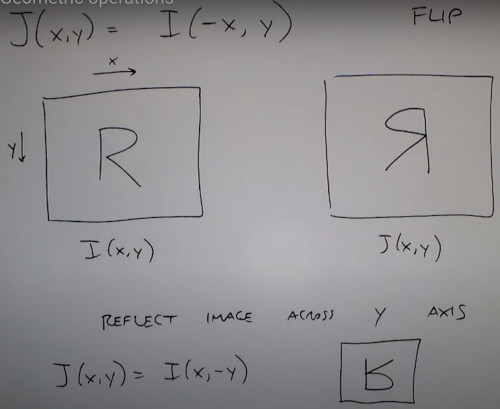 Geometric operations
J(x,y) = I(-x, y)
FLIP
x
y
R
I(x,y)
J(x,y)
REFLECT IMAGE ACROSS Y AXIS
J(x,y) = I(x,-y)